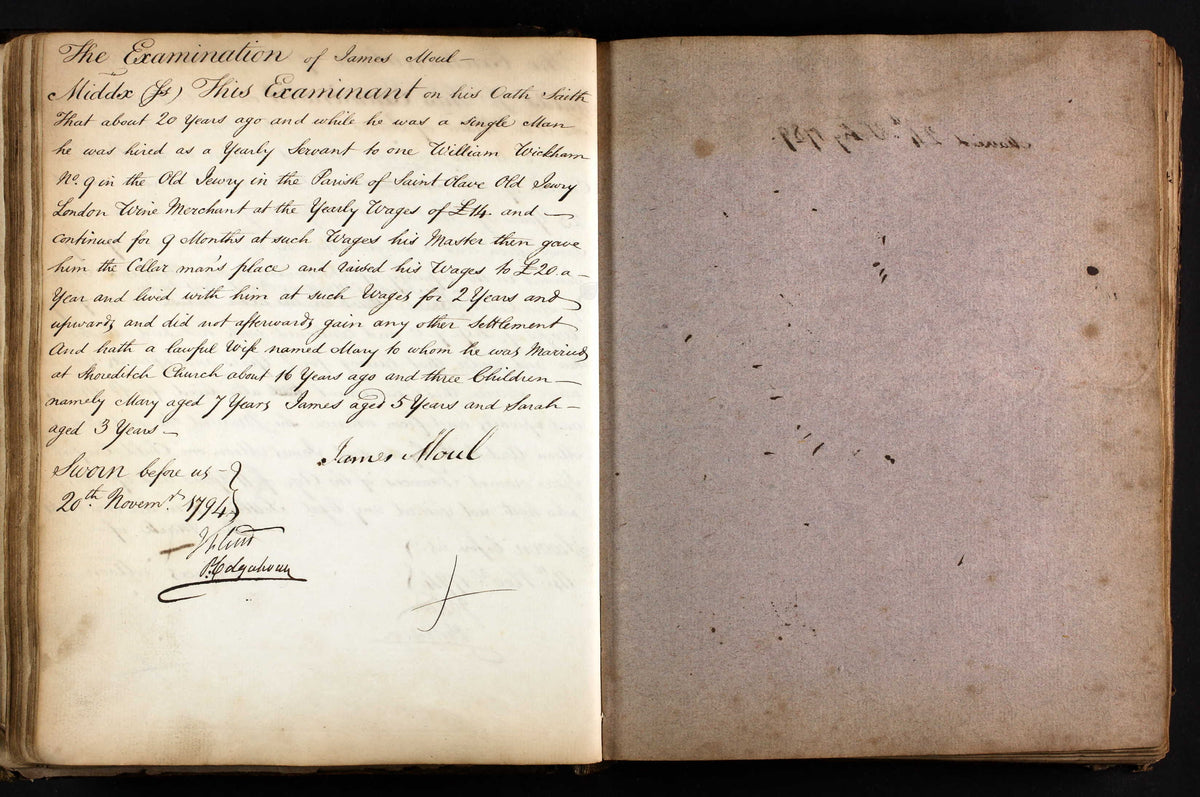 The Examination of James Moul —
Middx (Js) This Examinant on his Oath Saith
That about 20 Years ago and while he was a single Man
he was hired as a Yearly Servant to one William Wickham
No. 9 in the Old Jewry in the Parish of Saint Olave Old Jewry
London Wine Merchant at the Yearly Wages of £14. and —
continued for 9 Months at such Wages his Master then gave
him the Cellar man's place and raised his Wages to £20. a –
Year and lived with him at such Wages for 2 Years and
upwards and did not afterwards gain any other Settlement
And hath a lawful Wife named Mary to whom he was Married
at Shoreditch Church about 16 Years ago and three Children —
namely Mary aged 7 Years James aged 5 Years and Sarah –
aged 3 Years –
James Moul
Sworn before us –
20th Novemr. 1794